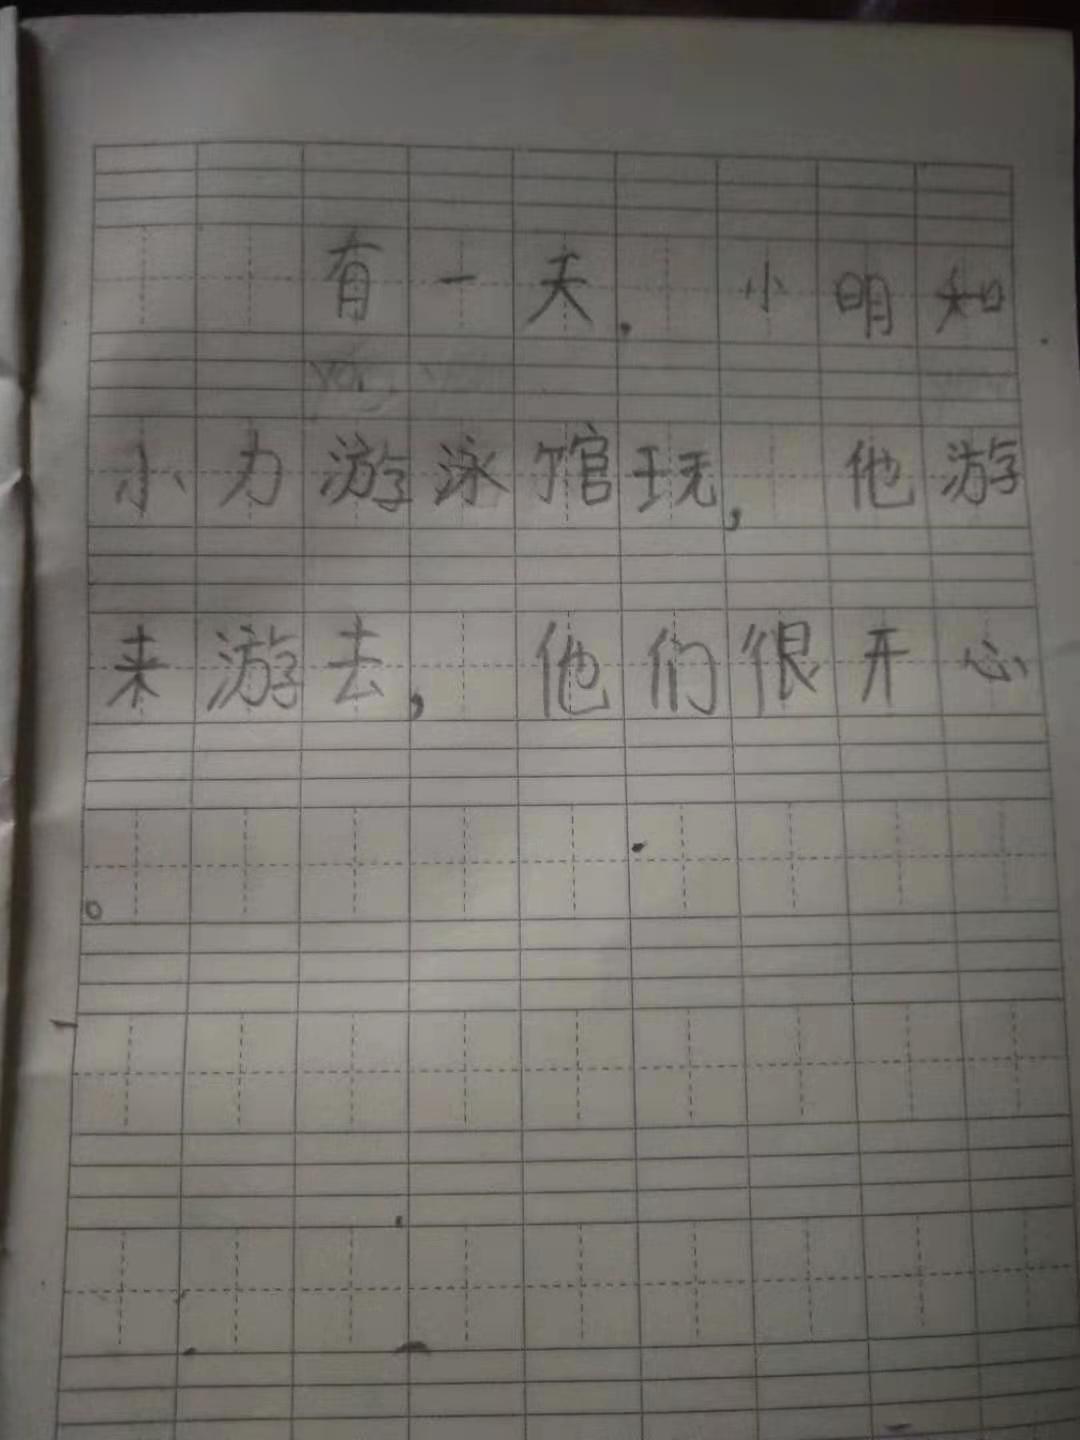 有一天，小明和
小力游泳馆玩，他游
来游去，他们很开心
。